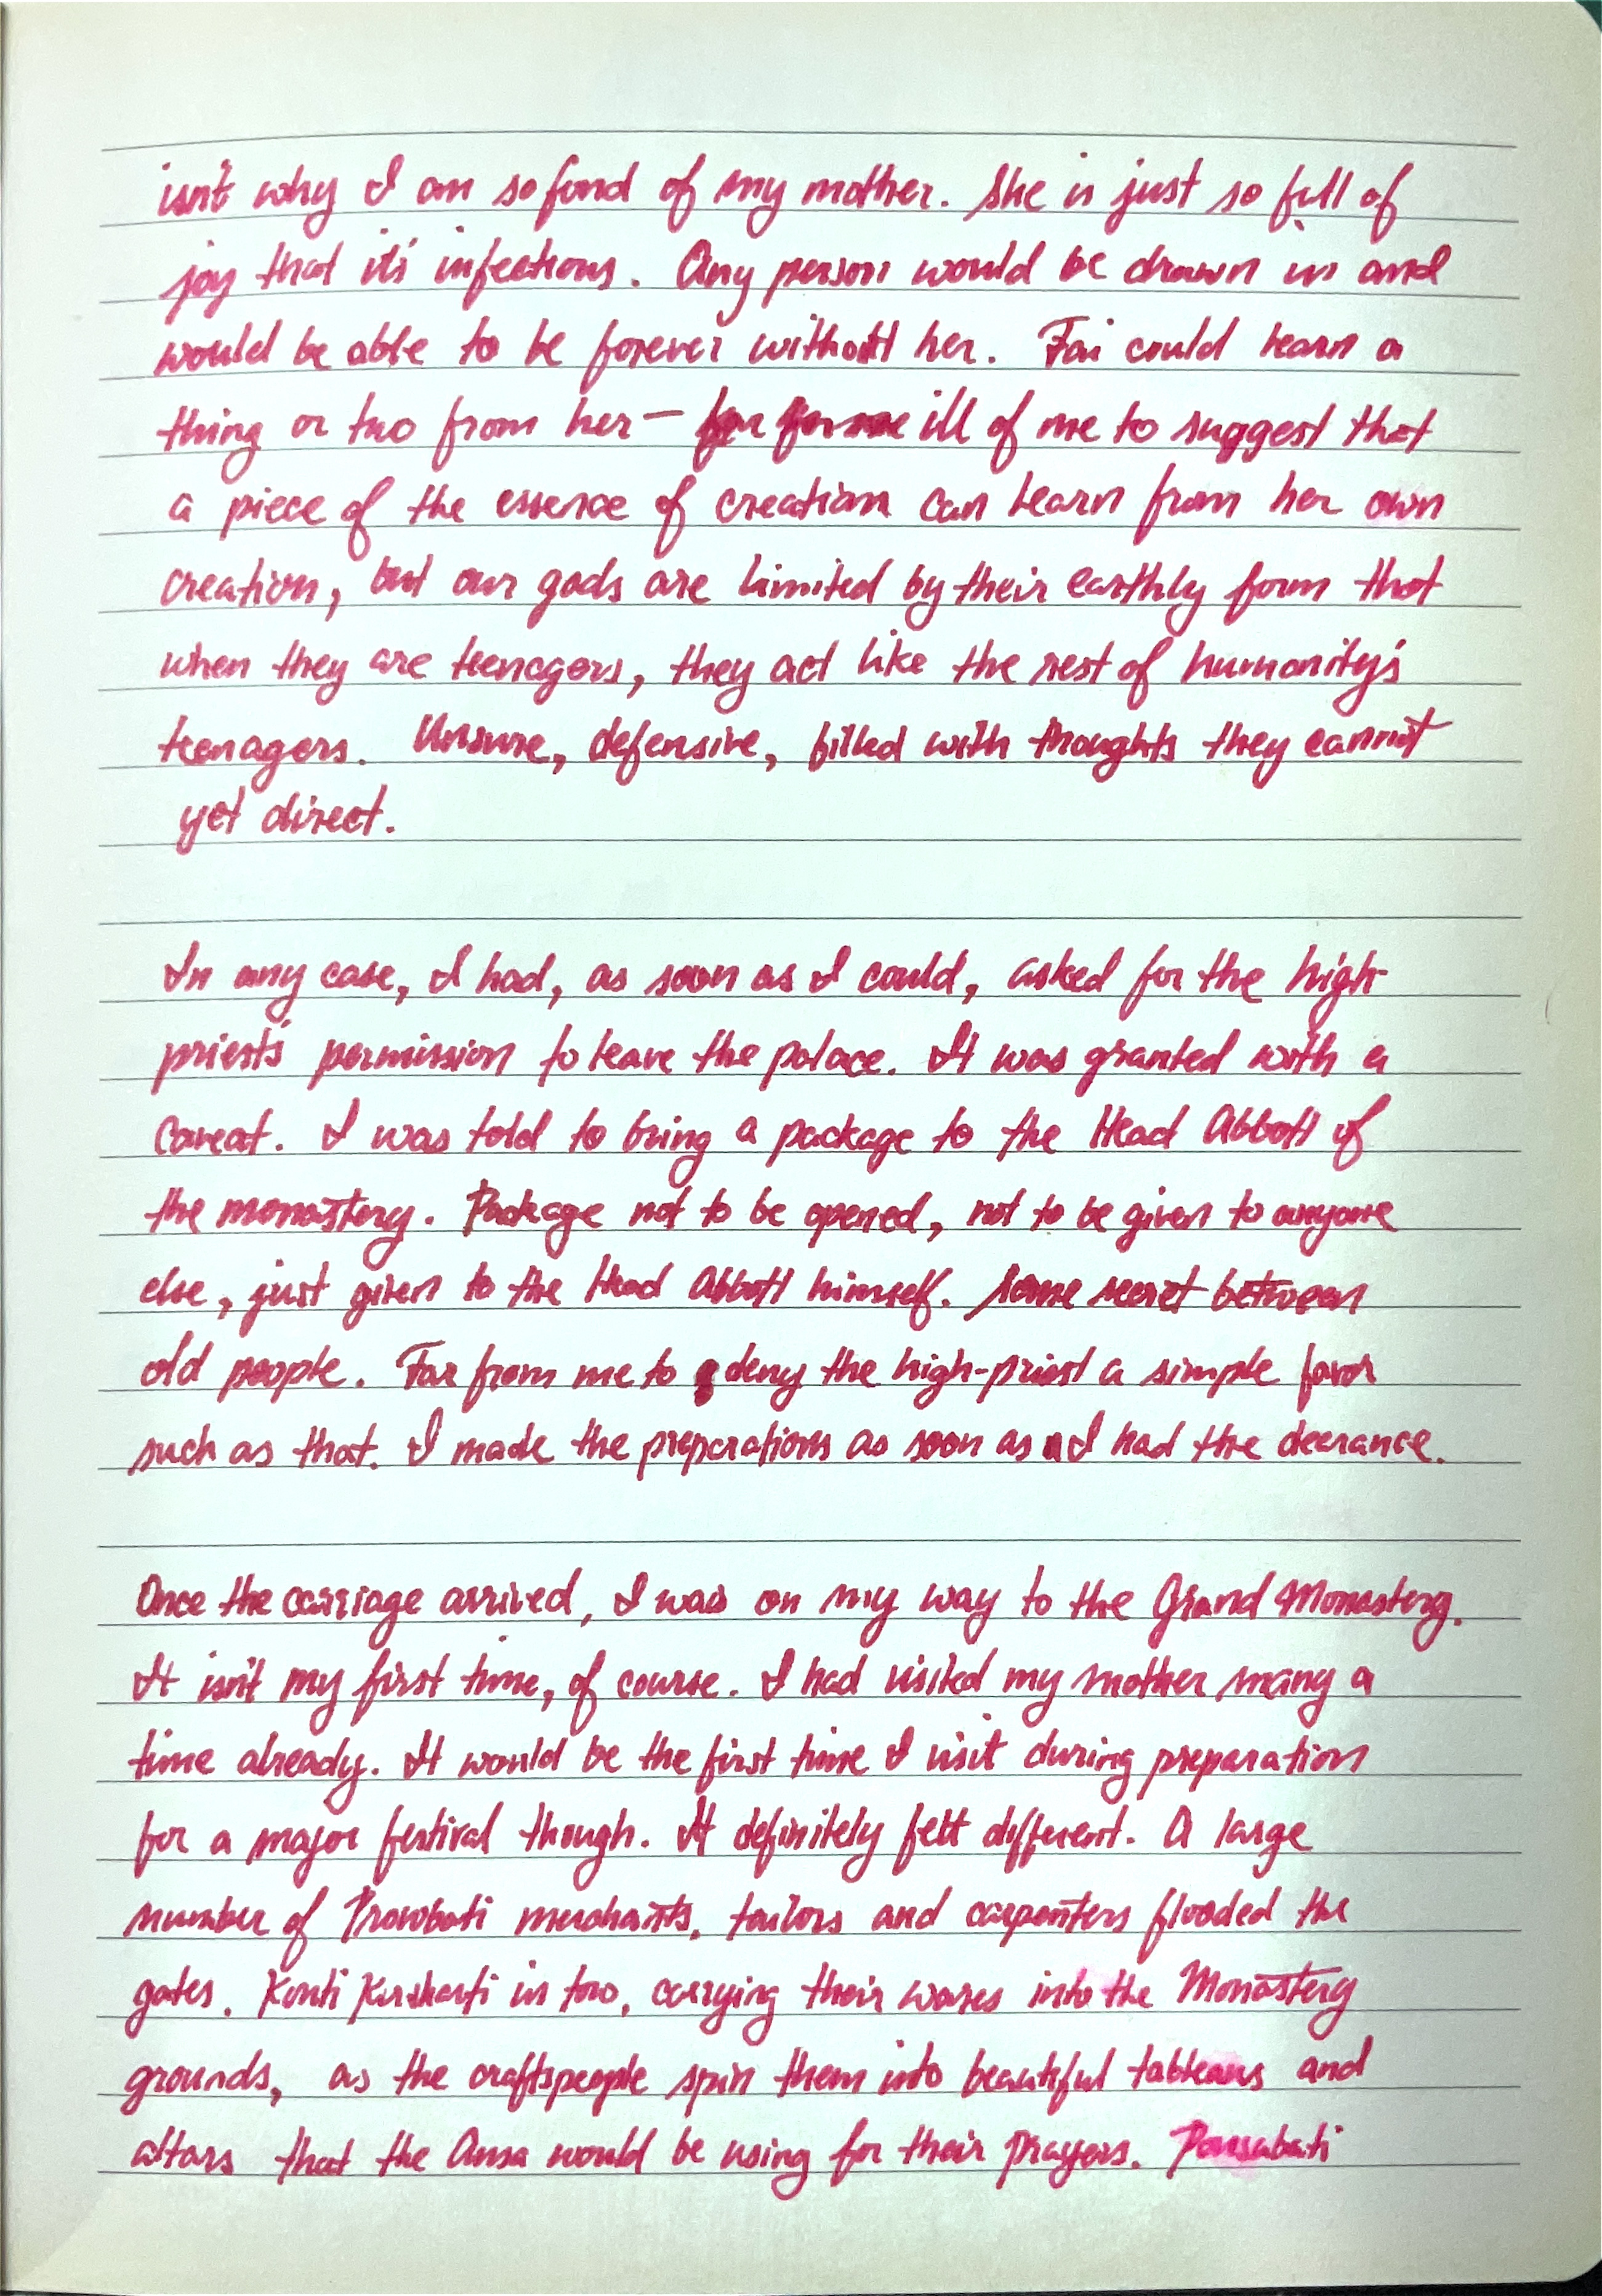 isn't why I am so fond of my mother. She is just so full of
joy that it's infectious. Any person would be drawn in and
would be able to be forever without her. Fai could learn a
thing or two from her— ill of me to suggest that
a piece of the essence of creation can learn from her own
creation, but our gods are limited by their earthly form that
when they are teenagers, they act like the rest of humanity's
teenagers. Unsure, defensive, filled with thoughts they cannot
yet direct.
In any case, I had, as soon as I could, asked for the high-
priest's permission to leave the palace. It was granted with a
caveat. I was told to bring a package to the Head Abbott of
the monastery. Package not to be opened, not to be given to anyone
else, just given to the Head Abbott himself. Some secret between
old people. Far from me to deny the high-priest a simple favor
such as that. I made the preparations as soon as I had the clearance.
Once the carriage arrived, I was on my way to the Grand Monastery.
It isn't my first time, of course. I had visited my mother many a
time already. It would be the first time I visit during preparation
for a major festival though. It definitely felt different. A large
number of merchants, tailors and carpenters flooded the
gates. in tow, carrying their wares into the Monastery
grounds, as the craftspeople spin them into beautiful tableaus and
altars that the Ansa would be using for their prayers.